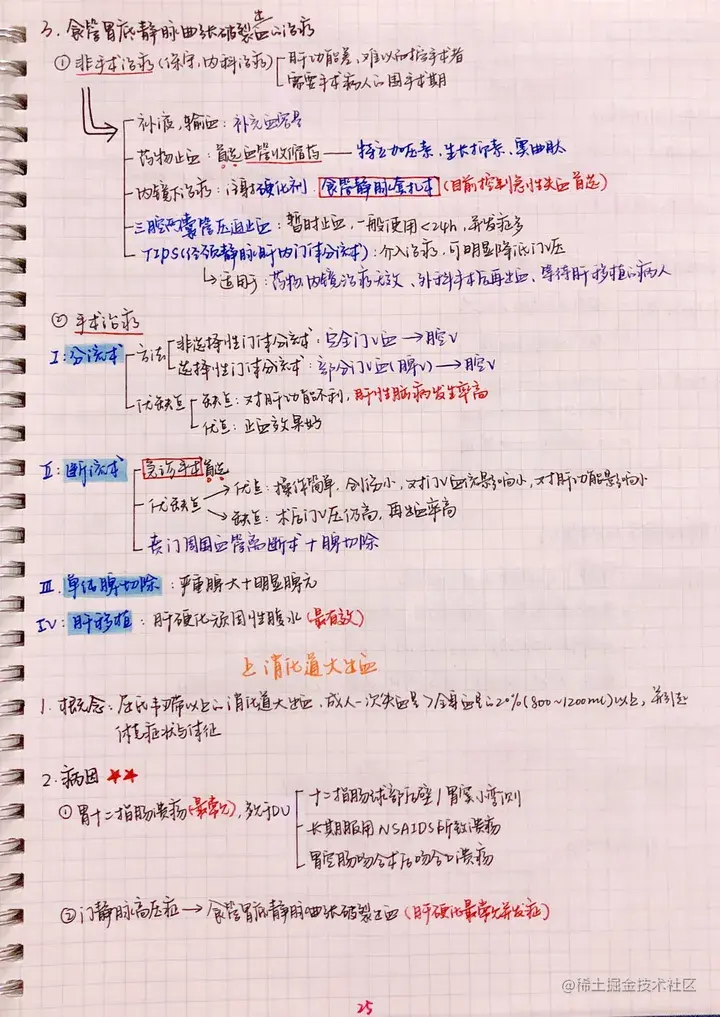 3. 食管胃底静脉曲张破裂出血的治疗
① 非手术治疗(保守,内科治疗) 肝功能差,难以耐受手术者
需要手术病人的围手术期
补液,输血:补充血容量
药物止血:首选血管收缩药——特立加压素、生长抑素、奥曲肽
内镜下治疗:注射硬化剂 食管静脉套扎术(目前控制急性失血首选)
三腔两囊管压迫止血:暂时止血,一般使用<24h,并发症多
TIPS(经颈静脉肝内门体分流术):介入治疗,可明显降低门V压
适用于:药物,内镜治疗无效、外科手术后再出血、等待肝移植的病人
② 手术治疗
I:分流术 方法 非选择性门体分流术:完全门V血→腔V
选择性门体分流术:部分门V血(脾V)→腔V
优缺点 缺点:对肝功能不利,肝性脑病发生率高
优点:止血效果好
II:断流术 急诊手术首选
优缺点 优点:操作简单,创伤小,对门V血流影响小,对肝功能影响小
缺点:术后门V压仍高,再出血率高
贲门周围血管离断术+脾切除
III.单纯脾切除:严重脾大+明显脾亢
IV:肝移植:肝硬化顽固性腹水(最有效)
上消化道大出血
1.概念:屈氏韧带以上的消化道大出血,成人一次失血量>全身血量的20%(800~1200ml)以上,并引起
休克症状与体征
2.病因 ★★
①胃十二指肠溃疡(最常见),多为DU 十二指肠球部后壁/胃窦小弯侧
长期服用NSAIDS所致溃疡
胃空肠吻合术后吻合口溃疡
②门静脉高压症→食管胃底静脉曲张破裂出血(肝硬化最常见并发症)
25
@稀土掘金技术社区